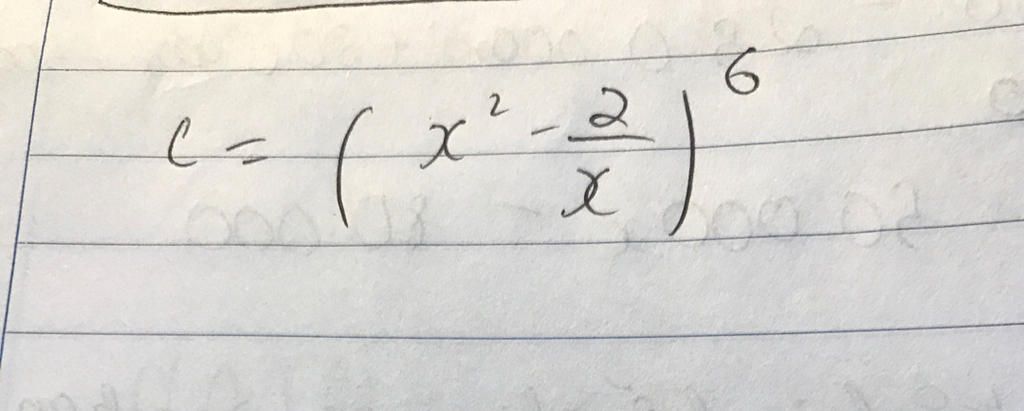 c = ( x² - 2/x )⁶